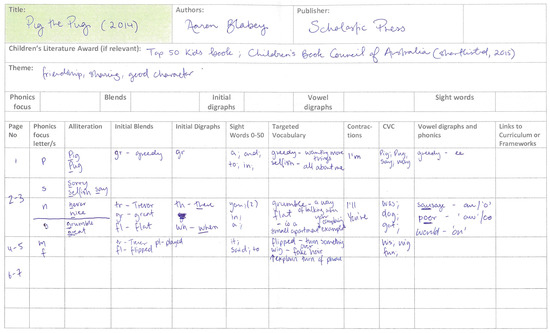 Title: Authors: Publisher:
Pig the Pug (2014) Aaron Blabey Scholastic Press
Children's Literature Award (if relevant): Top 50 Kids Book; Children's Book Council of Australia (shortlisted, 2015)
Theme:
friendship, sharing, good character
Phonics focus Blends Initial digraphs Vowel digraphs Sight words
Page No Phonics focus letter/s Alliteration Initial Blends Initial Digraphs Sight Words 0-50 Targeted Vocabulary Contrac-tions CVC Vowel digraphs and phonics Links to Curriculum or Frameworks
1 p Pig gr - greedy gr a, and, greedy - wanting more things I'm Pig, Pug, greedy - ee
Pug to, in, selfish - all about me
s Sorry
selfish say
2-3 n never tr - Trevor th - There you, (2) grumble - a way I'll was, sausage - au/'o'
nice gr - great in, flat You're dog, poor - 'aw'/oo
g grumble fl - flat wh - when a, - is a got, would -
great small apartment example
4-5 m pl - played it, flipped - turn something wig
f fl - flipped said, to wig - fake hair fun,
explain turn of phrase
6-7